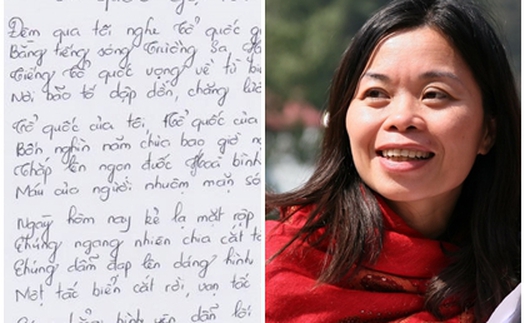 Đêm qua tôi nghe Tổ quốc g
Bằng tiếng sóng Trường Sa,
Tiếng Tổ quốc vọng về từ bi
Nơi bão tố dập dồn, chăng lư
Tổ quốc của tôi, Tổ quốc của
Bốn nghìn năm chưa bao giờ n
Thắp lên ngọn đuốc Hoà bình
Máu của người nhuộm mặn só
Ngày hôm nay kẻ lạ mặt rập
Chúng ngang nhiên chia cắt t
Chúng dẫm đạp lên dáng hình
Một tấc biển cắt rời, vạn tấc
bình yên dẫu lỡ